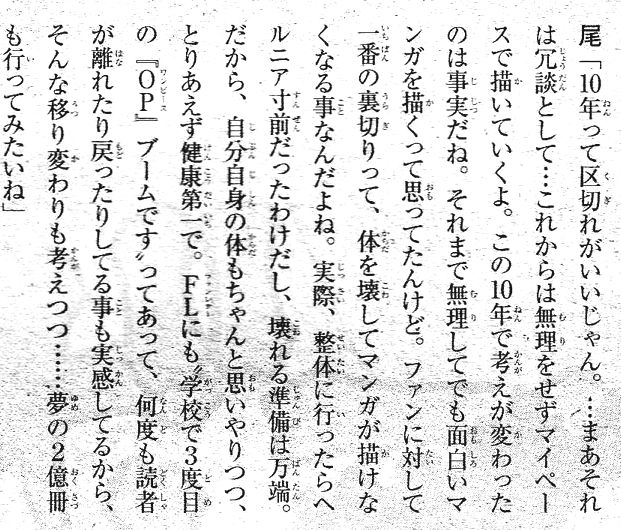 尾「10年って区切れがいいじゃん。…まあそれ
は冗談として…これからは無理をせずマイペー
スで描いていくよ。この10年で考えが変わった
のは事実だね。それまで無理してでも面白いマ
ンガを描くって思ってたんけど。ファンに対して
一番の裏切りって、体を壊してマンガが描けな
くなる事なんだよね。実際、整体に行ったらヘ
ルニア寸前だったわけだし、壊れる準備は万端。
だから、自分自身の体もちゃんと思いやりつつ、
とりあえず健康第一で。FLにも〝学校で3度目
の『OP』ブームです〟ってあって、何度も読者
が離れたり戻ったりしてる事も実感してるから、
そんな移り変わりも考えつつ……夢の2億冊
も行ってみたいね」